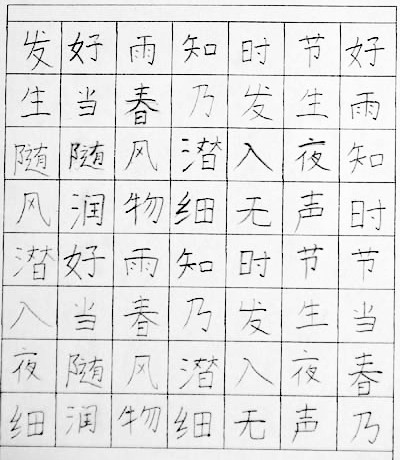 发好雨知时节好
生当春乃发生雨
随随风潜入夜知
风润物细无声时
潜好雨知时节节
入当春乃发生当
夜随风潜入夜春
细润物细无声乃